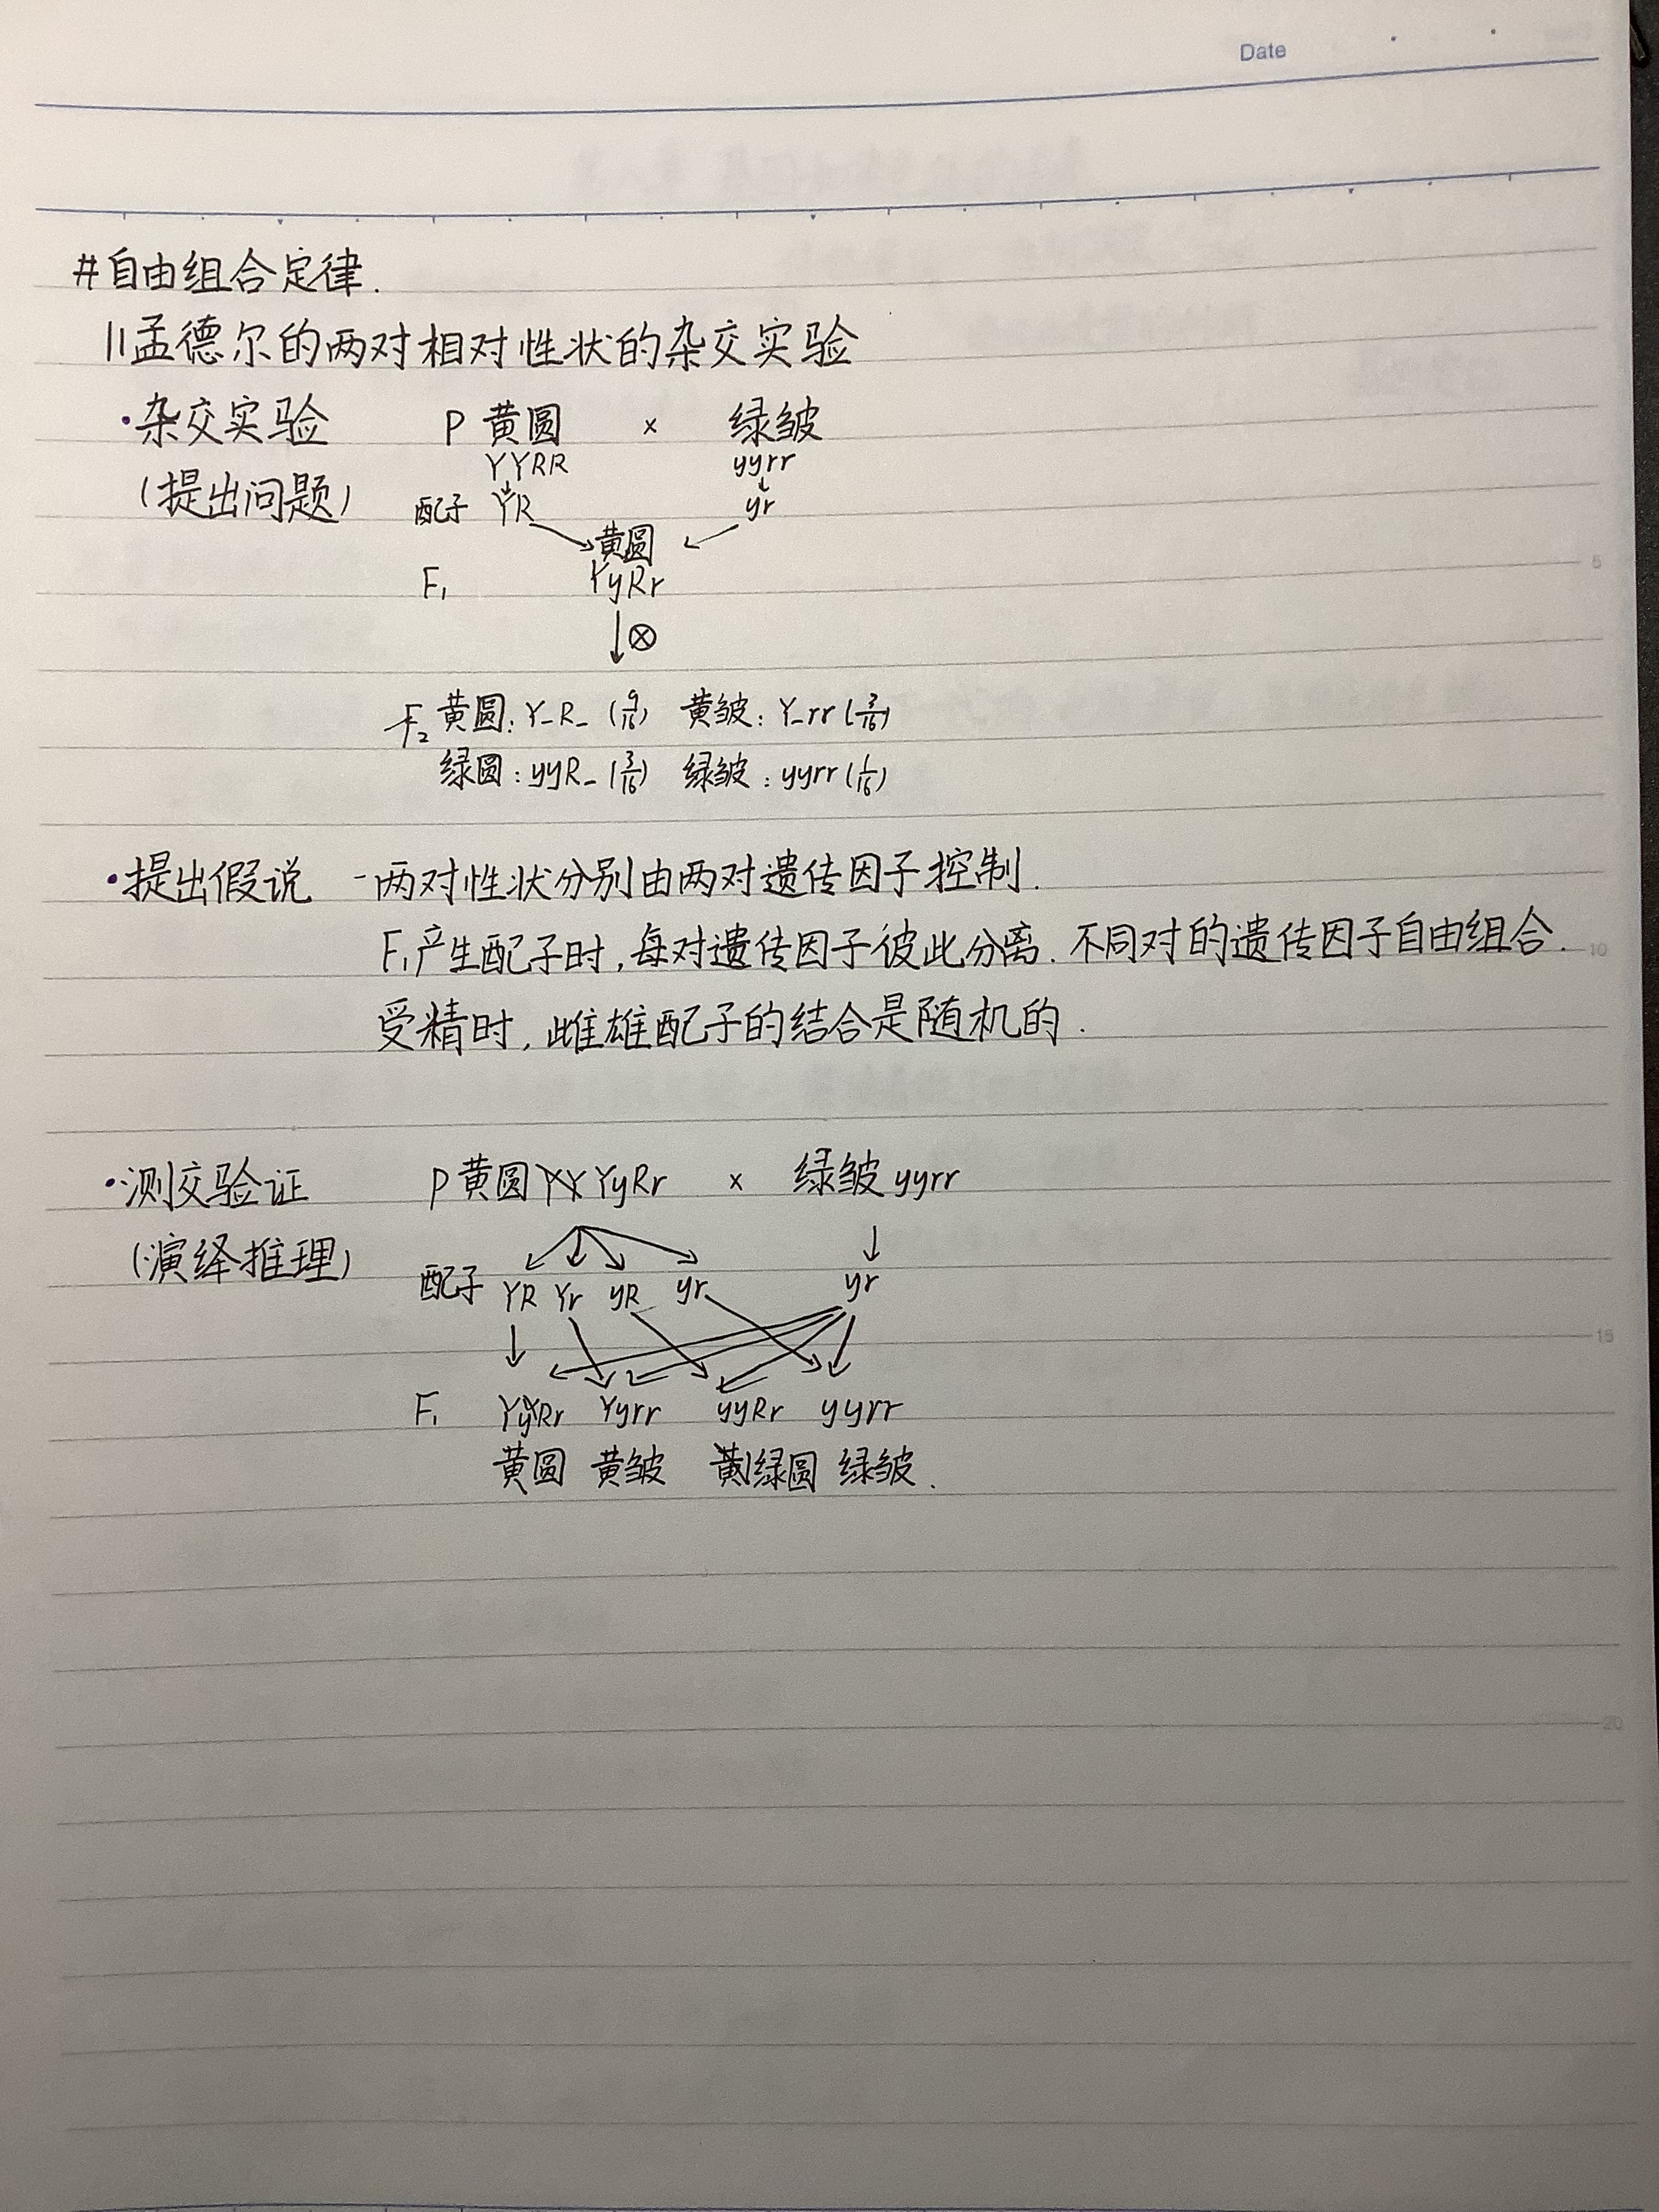 Date
#自由组合定律.
||孟德尔的两对相对性状的杂交实验
·杂交实验 P 黄圆 × 绿皱
YYRR yyrr
(提出问题) 配子 YR yr
黄圆
F₁ YyRr
↓⊗
F₂ 黄圆:Y_R_ (9/16) 黄皱:Y_rr (3/16)
绿圆:yyR_ (3/16) 绿皱:yyrr (1/16)
5
·提出假说 -两对性状分别由两对遗传因子控制.
F₁产生配子时,每对遗传因子彼此分离.不同对的遗传因子自由组合.
10
受精时,雌雄配子的结合是随机的.
·测交验证 P 黄圆 YyRr × 绿皱 yyrr
(演绎推理) 配子 YR Yr yR yr yr
15
F₁ YyRr Yyrr yyRr yyrr
黄圆 黄皱 绿圆 绿皱.
20